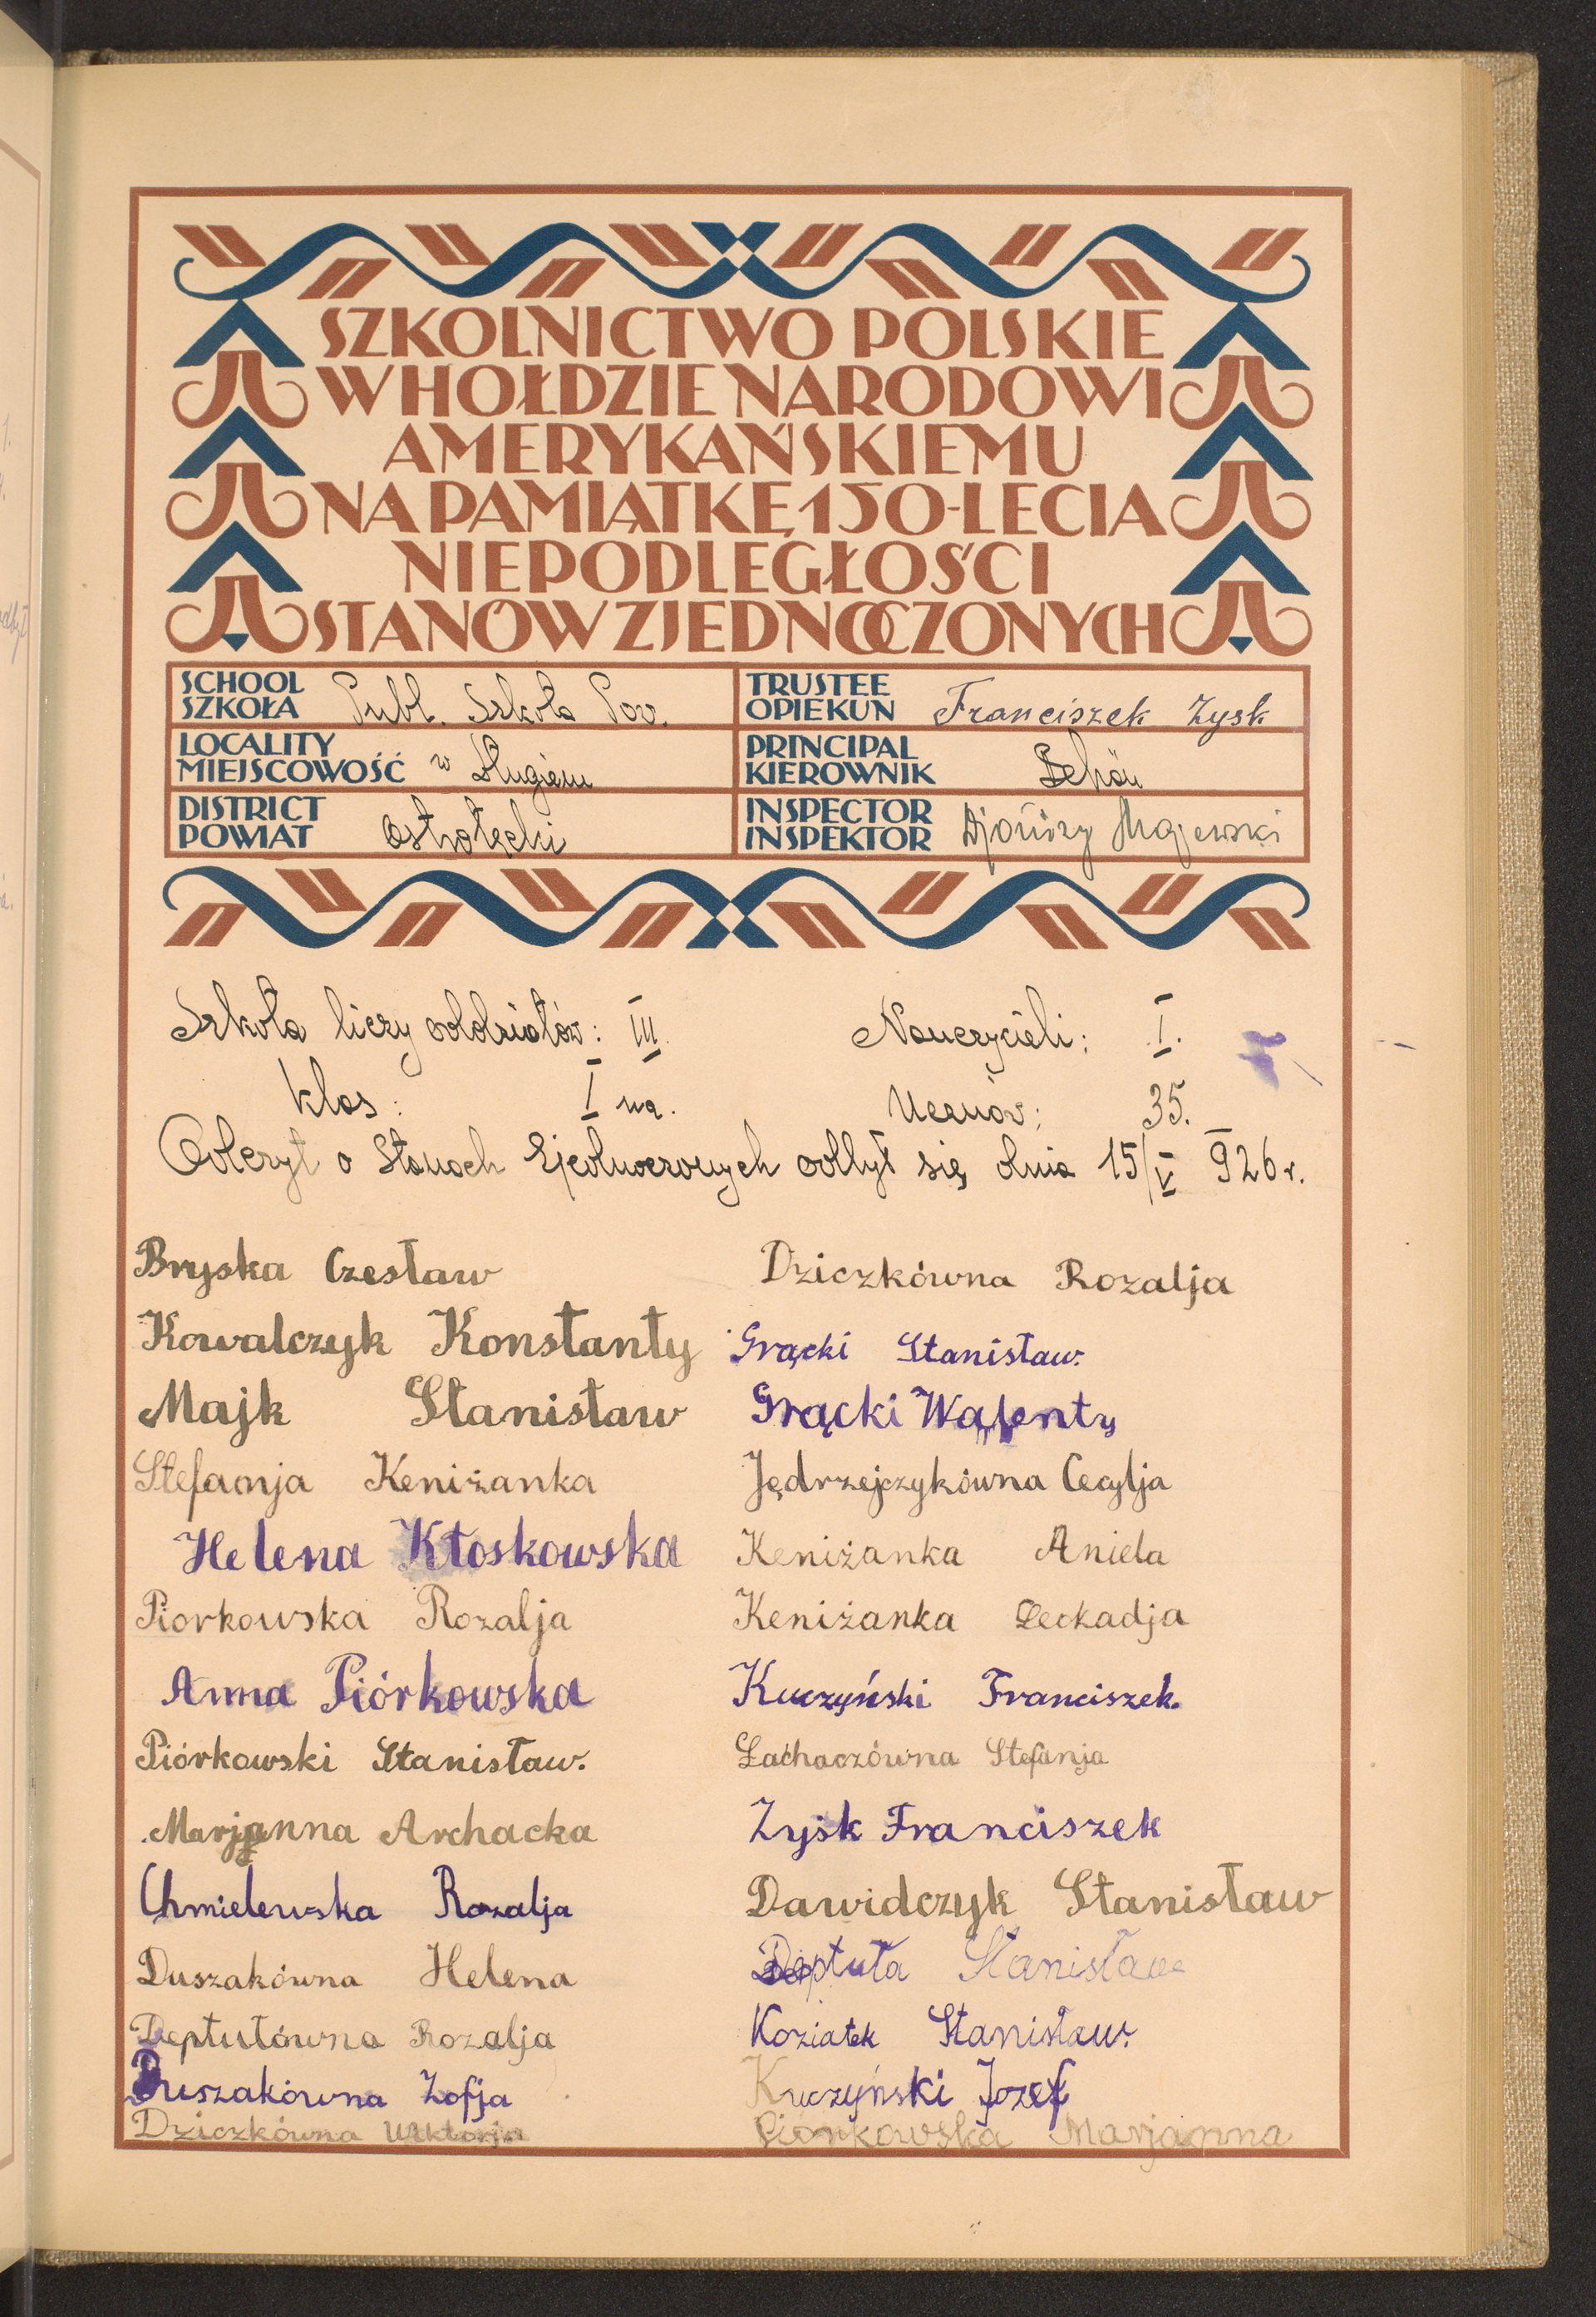 SZKOLNICTWO POLSKIE
W HOŁDZIE NARODOWI
AMERYKAŃSKIEMU
NA PAMIĄTKĘ 150-LECIA
NIEPODLEGŁOŚCI
STANÓW ZJEDNOCZONYCH
SCHOOL
SZKOŁA Publ. Szkoła Pow.
TRUSTEE
OPIEKUN Franciszek Zysk
LOCALITY
MIEJSCOWOŚĆ w Długiem
PRINCIPAL
KIEROWNIK
DISTRICT
POWIAT Ostrołęcki
INSPECTOR
INSPEKTOR Majewski
Szkoła liczy oddziałów: III. Nauczycieli: I.
klas: I na. Uczniów: 35.
Odczyt o Stanach Zjednoczonych odbył się dnia 15/V 926 r.
Bryska Czesław
Kowalczyk Konstanty
Majk Stanisław
Stefanja Keniżanka
Helena Kłoskowska
Piorkowska Rozalja
Anna Piórkowska
Piórkowski Stanisław.
Marjanna Archacka
Chmielewska Rozalja
Duszakówna Helena
Deptułówna Rozalja
Duszakówna Zofja
Dziczkówna Wiktorja
Dziczkówna Rozalja
Grącki Stanisław.
Grącki Walenty
Jędrzejczykówna Cecylja
Keniżanka Aniela
Keniżanka Leokadja
Kuczyński Franciszek.
Łachaczówna Stefanja
Zysk Franciszek
Dawidczyk Stanisław
Deptuła Stanisław
Koziatek Stanisław.
Kuczyński Jozef
Piórkowska Marjanna